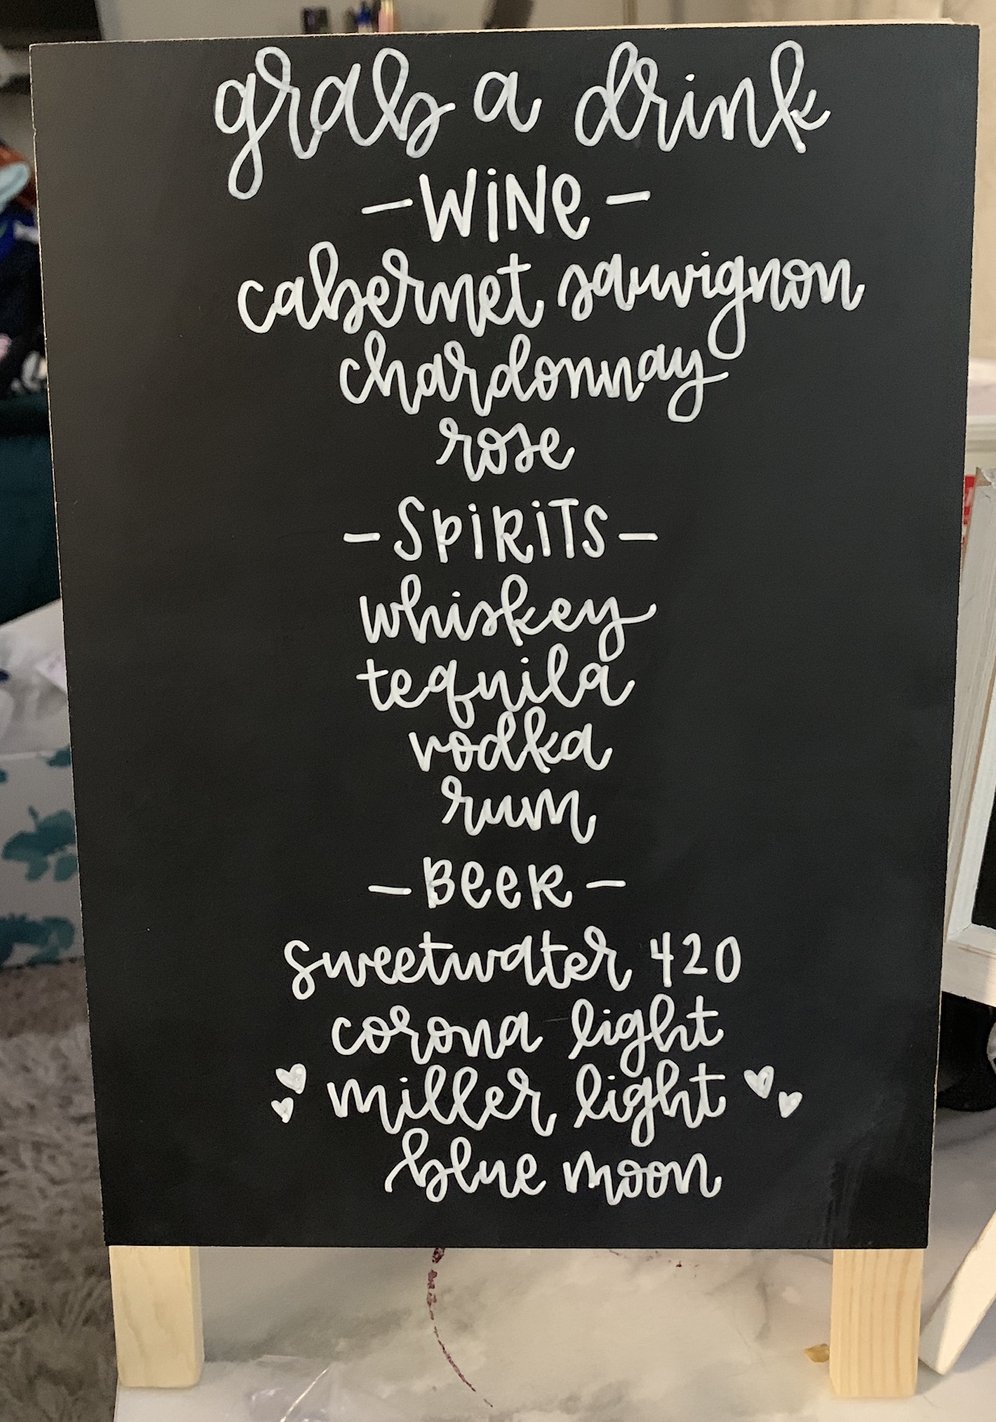 grab a drink
- WiNe -
cabernet sauvignon
chardonnay
rose
- SPiRiTS -
whiskey
tequila
vodka
rum
- BeeR -
sweetwater 420
corona light
miller light
blue moon